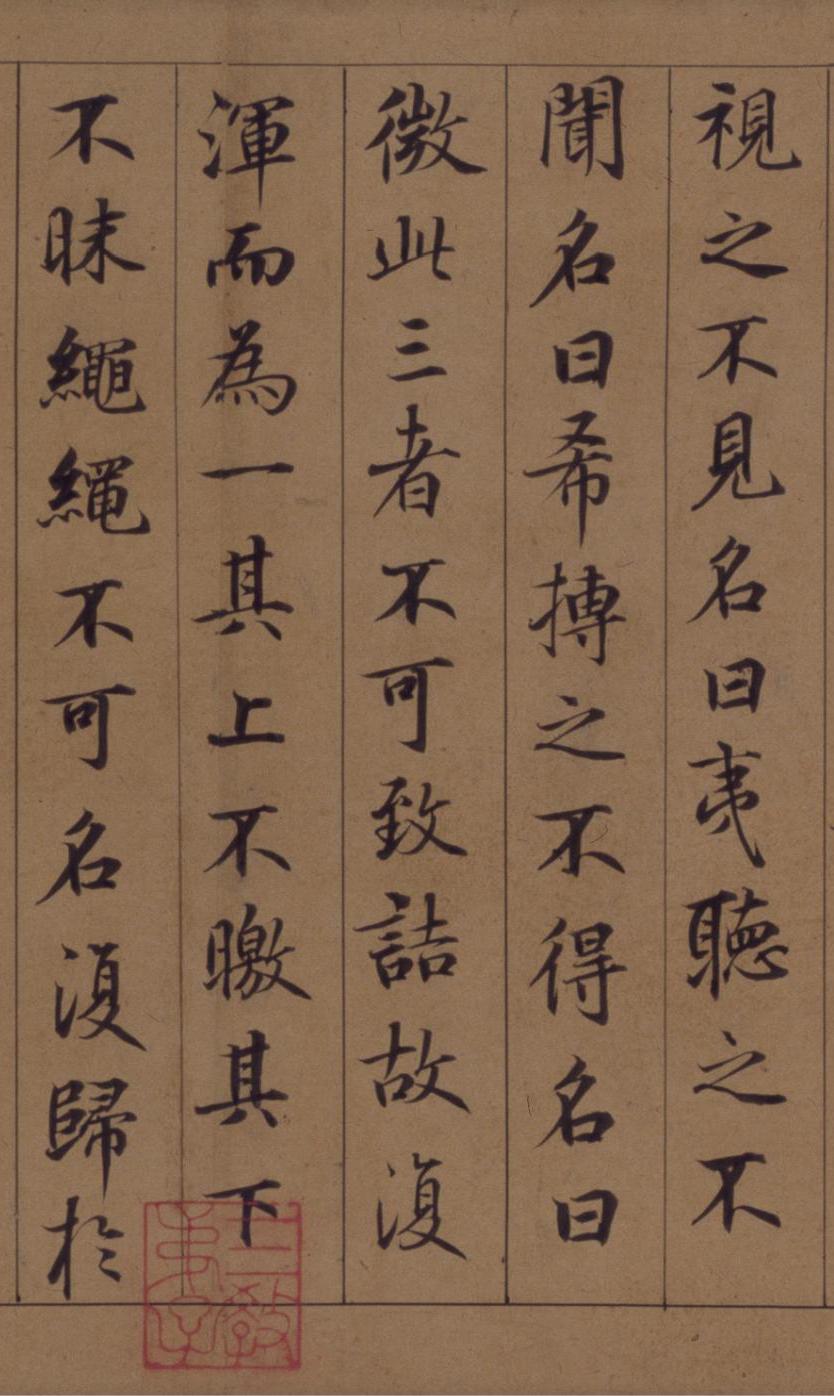 視之不見名曰夷聽之不
聞名曰希搏之不得名曰
微此三者不可致詰故復
渾而為一其上不皦其下
不昧繩繩不可名復歸於